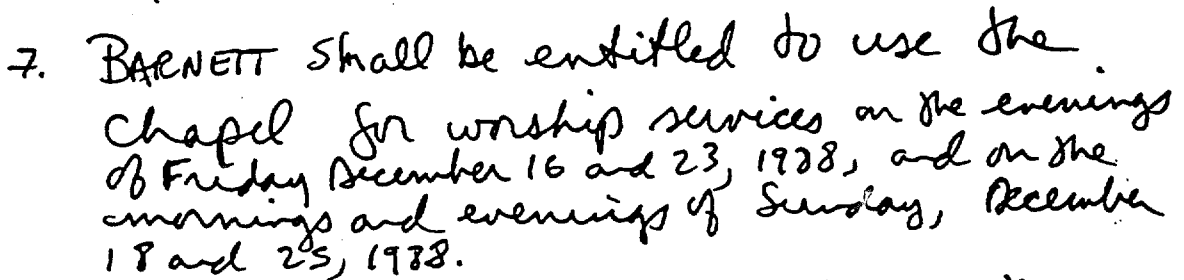 7. BARNETT shall be entitled to use the
chapel for worship services on the evenings
of Friday December 16 and 23, 1988, and on the
mornings and evenings of Sunday, December
18 and 25, 1988.